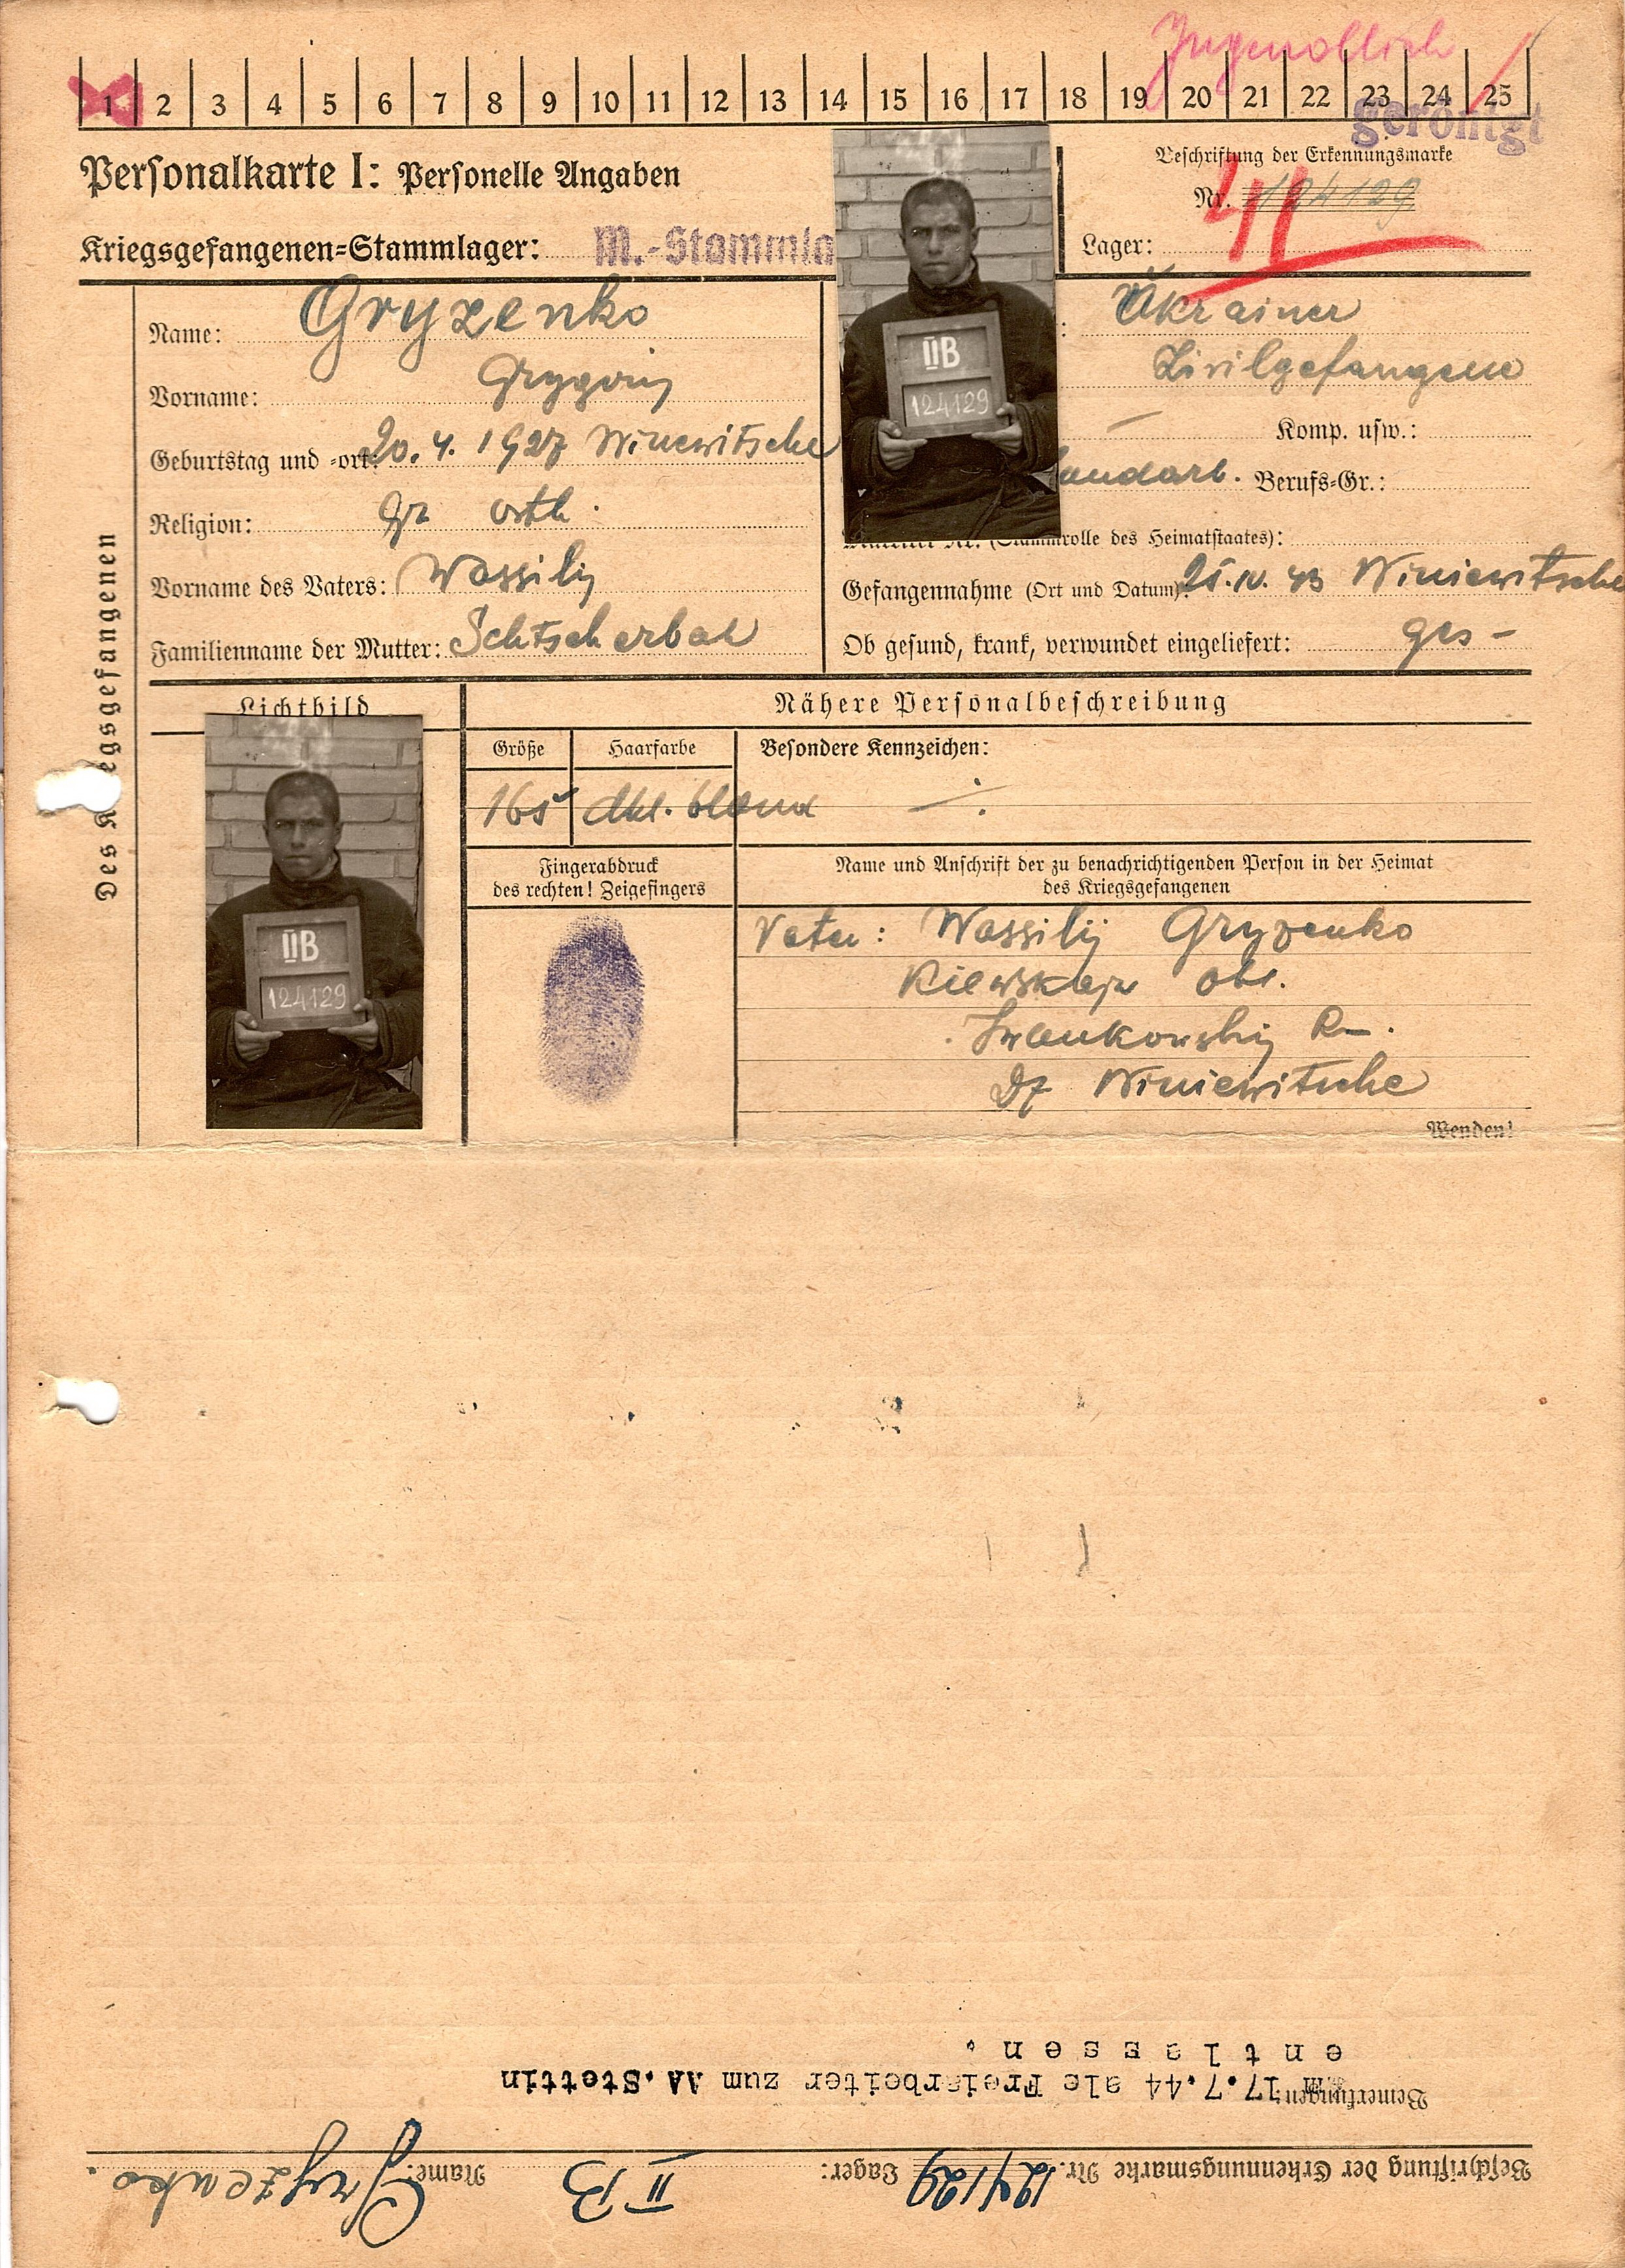 Jugendlich
1 2 3 4 5 6 7 8 9 10 11 12 13 14 15 16 17 18 19 20 21 22 23 24 25
geröntgt
Personalkarte I: Personelle Angaben
Beschriftung der Erkennungsmarke
Nr. 124129
Kriegsgefangenen=Stammlager: M.-Stammla
Lager:
Des K egsgefangenen
Name: Gryzenko
Vorname: Grygorij
Geburtstag und =ort: 20. 4. 1927 Winewitsche
Religion: Gr orth.
Vorname des Vaters: Wassilij
Familienname der Mutter: Schtscherbak
: Ukrainer
Zivilgefangene
Komp. usw.:
Landarb. Berufs=Gr.:
Matrikel Nr. (Stammrolle des Heimatstaates):
Gefangennahme (Ort und Datum): 25. IV. 43 Winiewitsche
Ob gesund, krank, verwundet eingeliefert: ges -
IIB
124129
Lichtbild
IIB
124129
Nähere Personalbeschreibung
Größe Haarfarbe Besondere Kennzeichen:
165 dkl. blond
Fingerabdruck
des rechten! Zeigefingers
Name und Anschrift der zu benachrichtigenden Person in der Heimat
des Kriegsgefangenen
Vater: Wassilij Gryzenko
Kiewskaja obl.
Iwankowskij R-.
Df Winiewitsche
Wenden!
Beschriftung der Erkennungsmarke Nr. 124129 Lager: II B Name: Gryzenko.
Bemerkungen: 17.7.44 als Freiarbeiter zum AA.Stettin
entlassen.